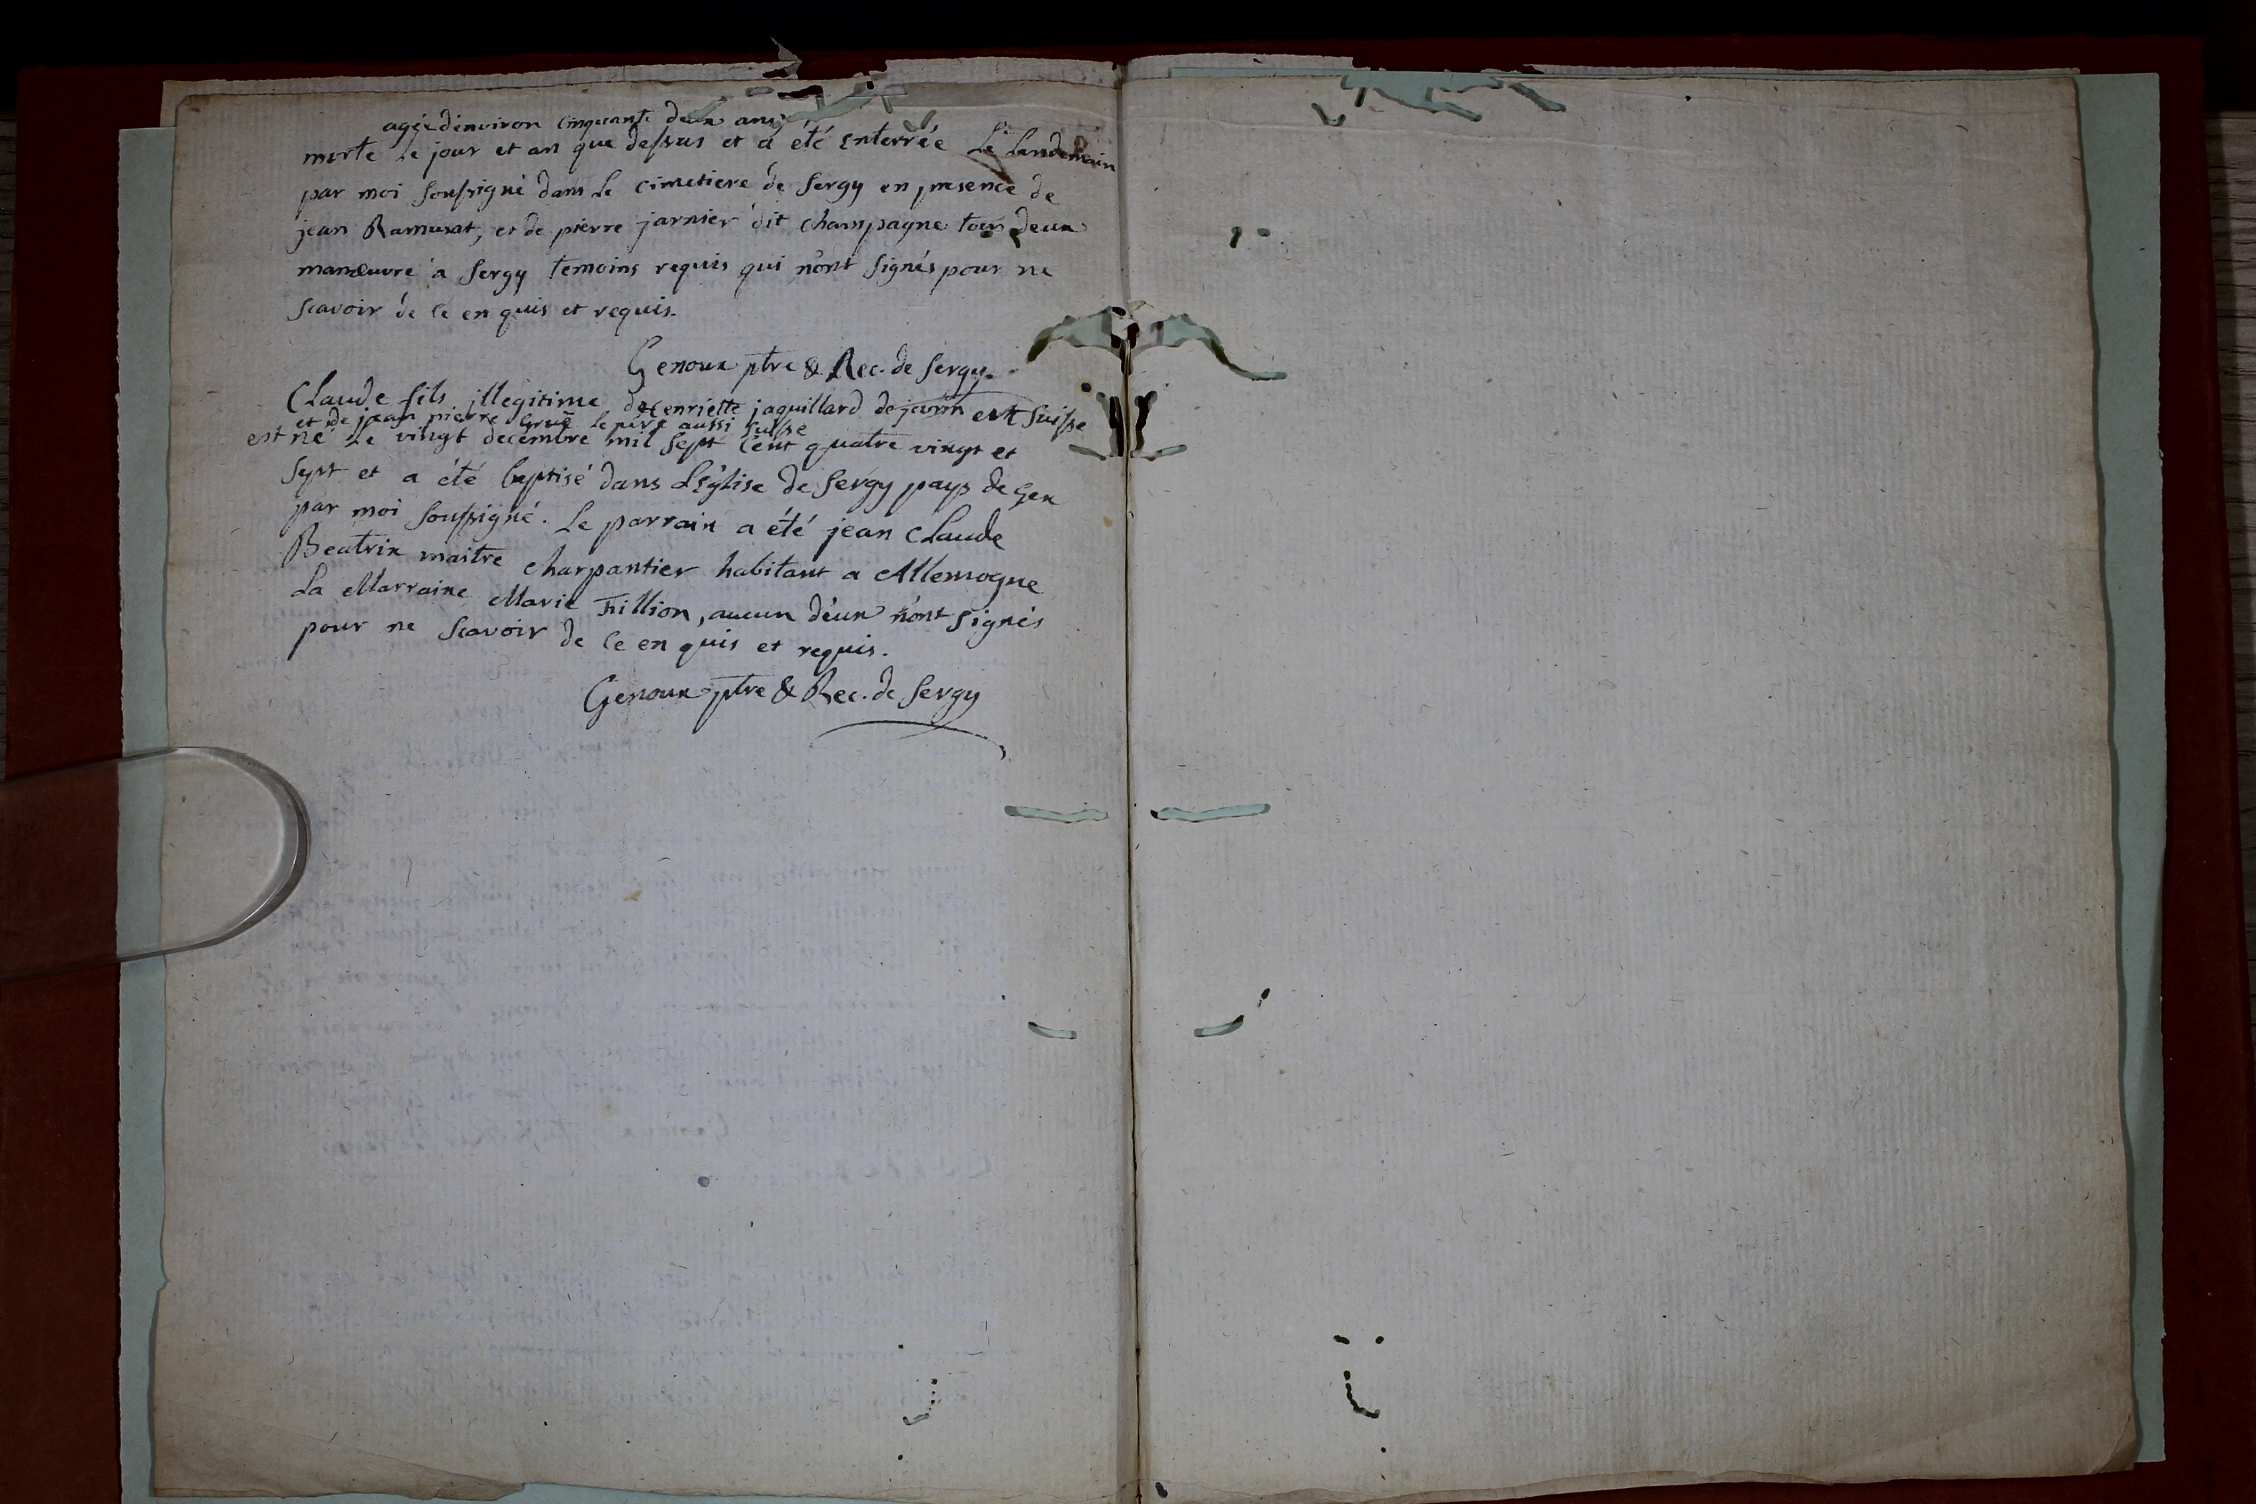 agée d'environ cinquante deux ans
morte le jour et an que dessus et a été enterrée Le Lendemain
par moi soussigné dans le cimetiere de sergy en presence de
jean Ramusat, et de pierre jarnier dit champagne tous deux
manœuvre a sergy temoins requis qui n'ont signés pour ne
scavoir de ce en quis et requis.
Genoux ptre & Rec. de sergy.
Claude fils illegitime de henriette jaquillard de suisse
et de jean pierre le père aussi suisse
est né le vingt decembre mil sept cent quatre vingt et
sept et a été baptisé dans L'église de sergy pays de Gex
par moi soussigné. Le parrain a été jean Claude
Beatrix maitre charpantier habitant a Allemogne
La Marraine Marie Fillion, aucun d'eux n'ont signés
pour ne scavoir de ce en quis et requis.
Genoux ptre & Rec. de sergy